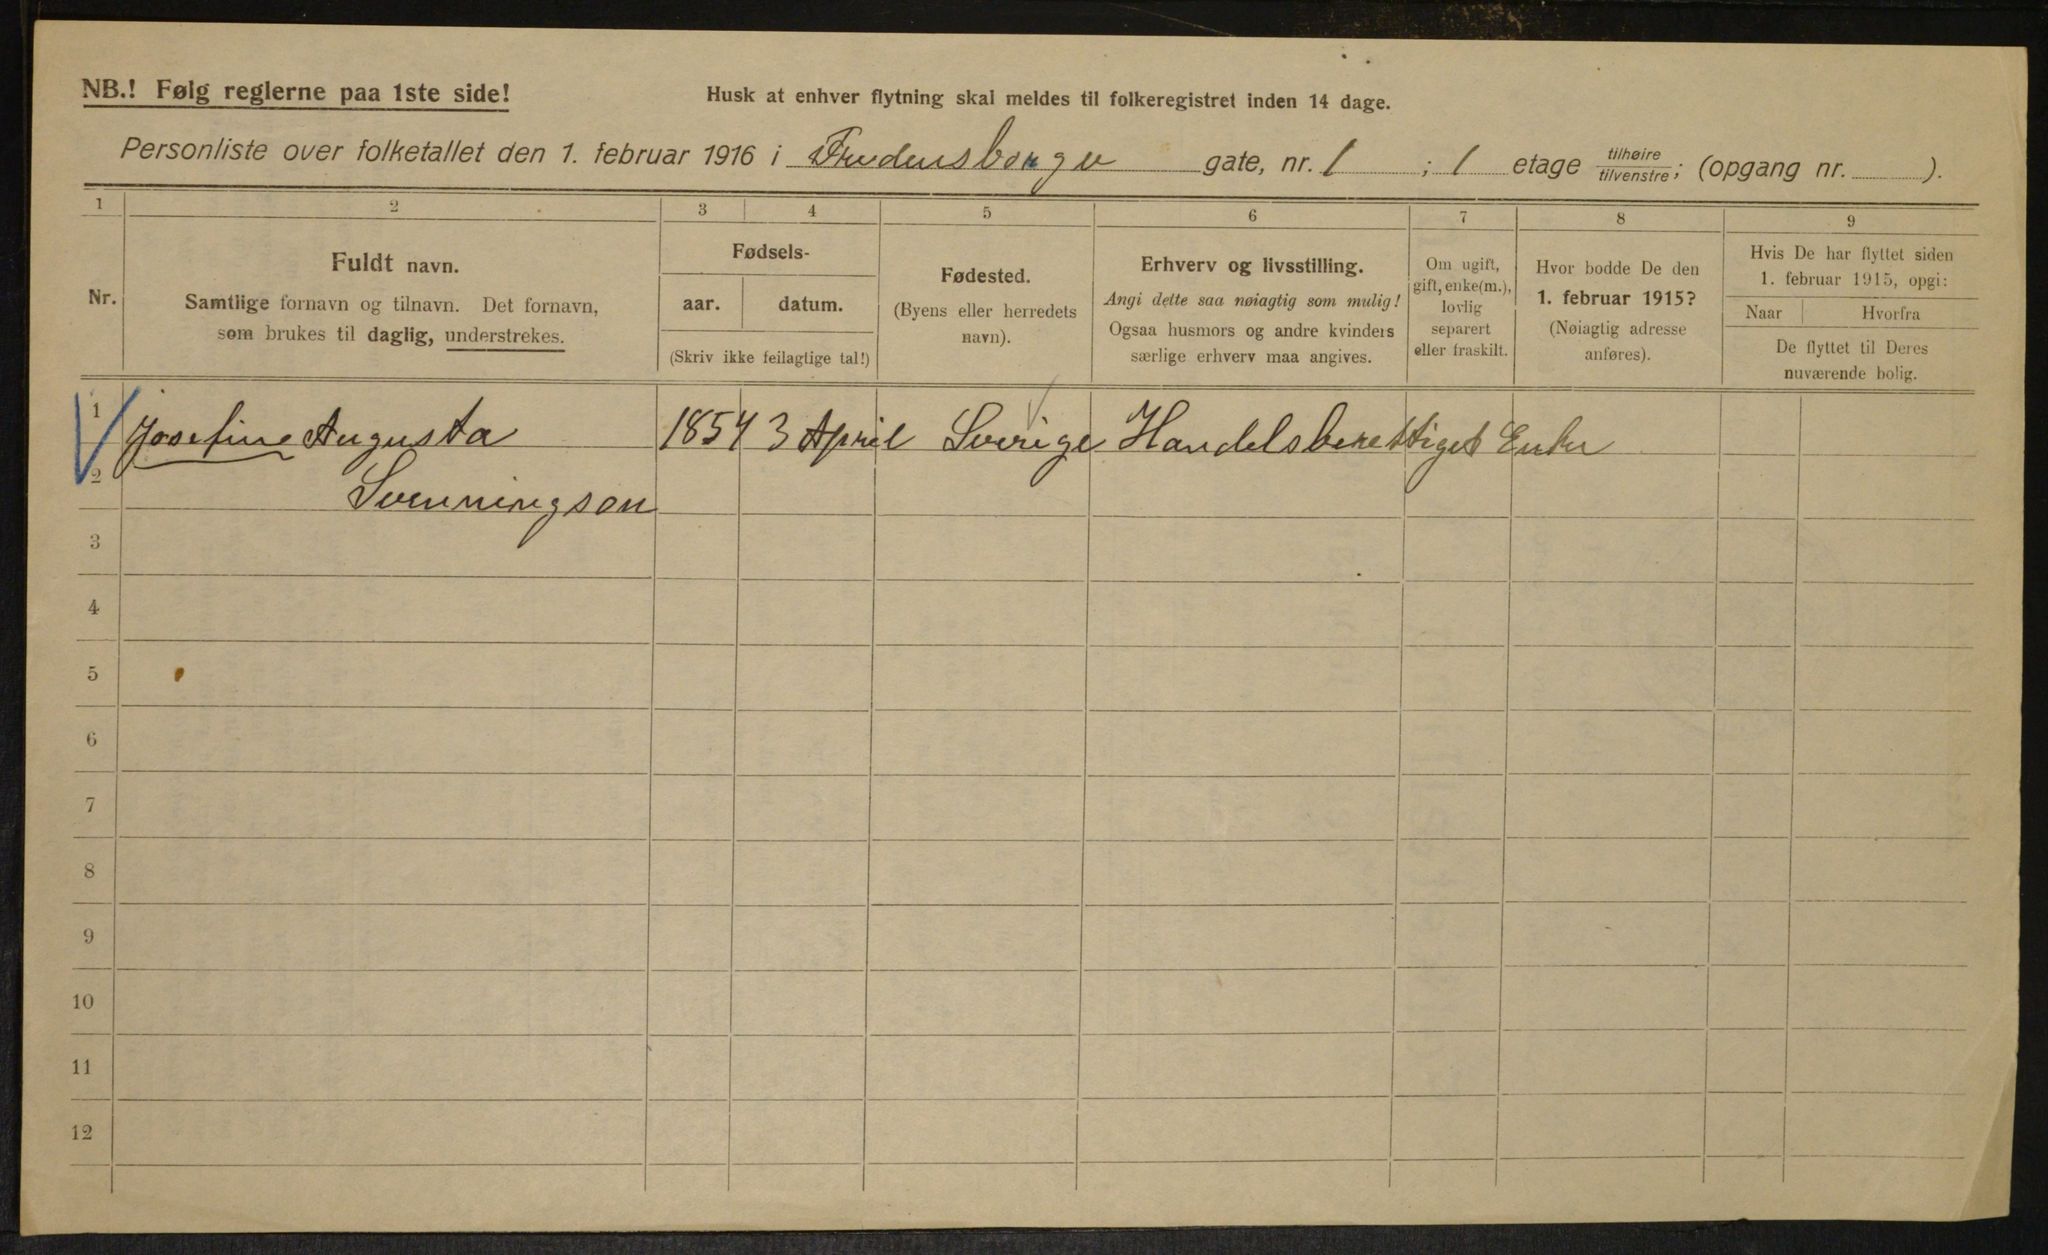 NB.! Følg reglerne paa 1ste side!
Husk at enhver flytning skal meldes til folkeregistret inden 14 dage.
Personliste over folketallet den 1. februar 1916 i Fredensborgv gate, nr. 1 ; 1 etage tilhøire tilvenstre; (opgang nr. ).
1 2 3 4 5 6 7 8 9
Nr.
Fuldt navn.
Samtlige fornavn og tilnavn. Det fornavn,
som brukes til daglig, understrekes.
Fødsels-
aar. datum.
(Skriv ikke feilagtige tal!)
Fødested.
(Byens eller herredets
navn).
Erhverv og livsstilling.
Angi dette saa nøiagtig som mulig!
Ogsaa husmors og andre kvinders
særlige erhverv maa angives.
Om ugift,
gift, enke(m.),
lovlig
separert
eller fraskilt.
Hvor bodde De den
1. februar 1915?
(Nøiagtig adresse
anføres).
Hvis De har flyttet siden
1. februar 1915, opgi:
Naar Hvorfra
De flyttet til Deres
nuværende bolig.
1 Josefine Augusta 1854 3 April Sverige Handelsberettiget Enke
2 Svenningson
3
4
5
6
7
8
9
10
11
12